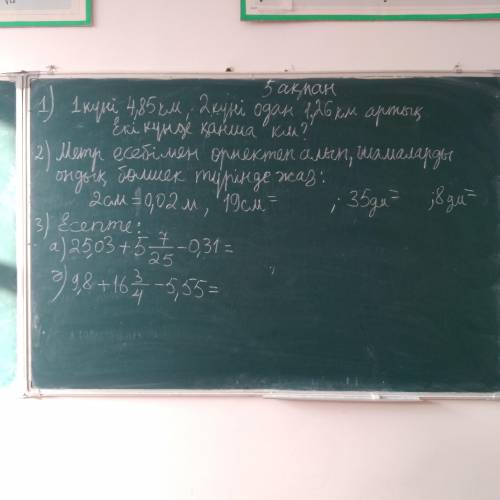 5 ақпан
1) 1 күні 4,85 км, 2 күні одан 1,26 км артық
Екі күнде қанша км?
2) Метр есебімен өрнектеп алып, шамаларды
ондық бөлшек түрінде жаз:
2 см = 0,02 м, 19 см = ; 35 дм = ; 8 дм =
3) Есепте:
а) 25,03 + 5 7/25 - 0,31 =
ә) 9,8 + 16 3/4 - 5,55 =